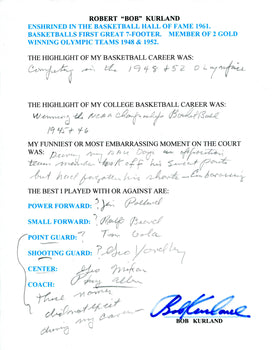 ROBERT "BOB" KURLAND
ENSHRINED IN THE BASKETBALL HALL OF FAME 1961.
BASKETBALLS FIRST GREAT 7-FOOTER. MEMBER OF 2 GOLD
WINNING OLYMPIC TEAMS 1948 & 1952.
THE HIGHLIGHT OF MY BASKETBALL CAREER WAS:
Competing in the 1948 & 52 Olympics
THE HIGHLIGHT OF MY COLLEGE BASKETBALL CAREER WAS:
Winning the NCAA Championship Basketball
1945 & 46
MY FUNNIEST OR MOST EMBARRASSING MOMENT ON THE COURT
WAS: During my AAU Days an opposition
team member took off his sweat pants
but had forgotten his shorts
THE BEST I PLAYED WITH OR AGAINST ARE:
POWER FORWARD: ? Jim Pollard
SMALL FORWARD: ? Ralph Beard
POINT GUARD: ? Tom Gola
SHOOTING GUARD: ? Geo Yardley
CENTER: Geo Mikan
COACH:
These names
did not exist
during my career
Bob Kurland
BOB KURLAND